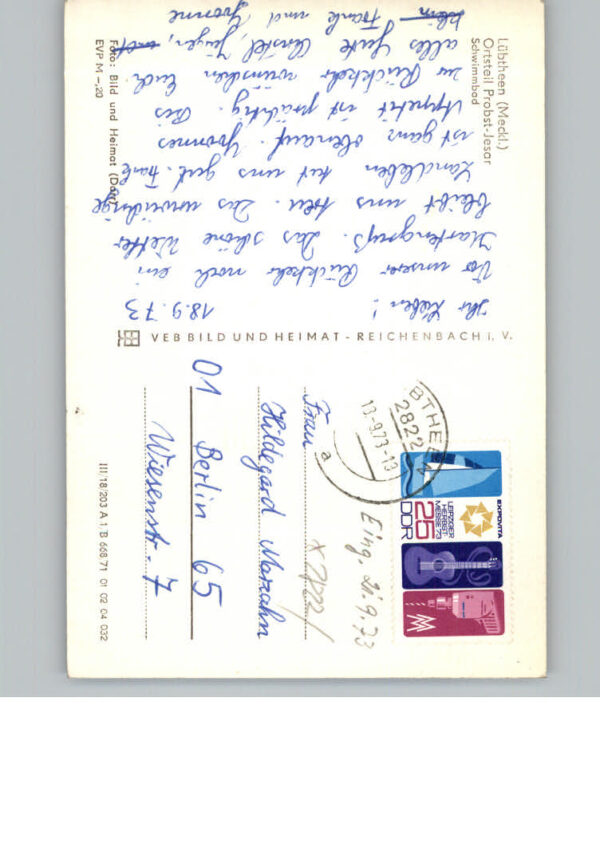 Lübtheen (Meckl.)
Ortsteil Probst-Jesar
Schwimmbad
18.9.73
Ihr Lieben!
Vor unserer Rückkehr noch ein
Kartengruß. Das schöne Wetter
bleibt uns treu. Das
Landleben tut uns gut. Frank
ist ganz obenauf. Yvonnes
Appetit ist prächtig. Bis
zur Rückkehr wünschen Euch
alles Gute Christel, Jürgen,
Frank und Yvonne
Foto: Bild und Heimat
EVP M -,20
VEB BILD UND HEIMAT - REICHENBACH i. V.
BTHEEN
2822
18-9.73-13
a
EXPOVITA
LEIPZIGER
HERBST-
MESSE 73
25
DDR
MM
Eing. 21.9.73
x 2822/
Frau
Hildegard Marzahn
01 Berlin 65
Wiesenstr. 7
III/18/203 A 1/B 668/71 01 02 04 032